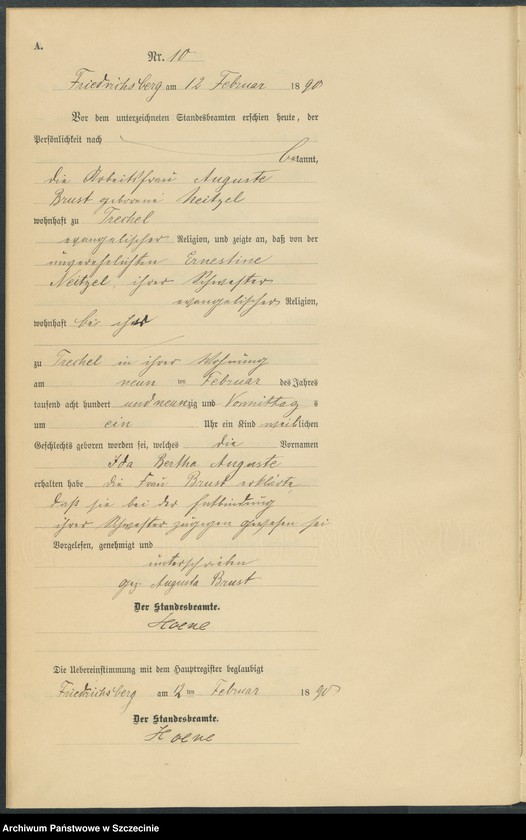 A.
Nr. 10
Friedrichsberg am 12 Februar 1890
Vor dem unterzeichneten Standesbeamten erschien heute, der
Persönlichkeit nach
bekannt,
die Arbeitsfrau Auguste
Brust geborene Neitzel
wohnhaft zu Trechel
evangelischer Religion, und zeigte an, daß von der
unverehelichten Ernestine
Neitzel, ihrer Schwester
evangelischer Religion,
wohnhaft bei ihr
zu Trechel in ihrer Wohnung
am neun ten Februar des Jahres
tausend acht hundert und neunzig und Vormittag s
um ein Uhr ein Kind weiblichen
Geschlechts geboren worden sei, welches die Vornamen
Ida Bertha Auguste
erhalten habe die Frau Brust erklärte,
daß sie bei der Entbindung
ihrer Schwester zugegen gewesen sei
Vorgelesen, genehmigt und
unterschrieben
gez. Augusta Brust
Der Standesbeamte.
Hoene
Die Uebereinstimmung mit dem Hauptregister beglaubigt
Friedrichsberg am 12 ten Februar 1890
Der Standesbeamte.
Hoene
Archiwum Państwowe w Szczecinie